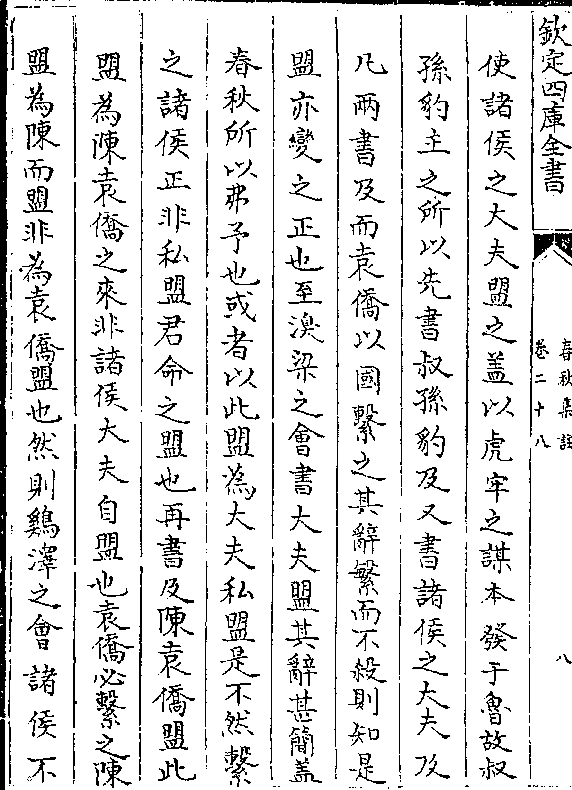 欽定四庫全書
春秋集註
卷二十八
八
使諸侯之大夫盟之盖以虎牢之謀本發于魯故叔
孫豹主之所以先書叔孫豹及又書諸侯之大夫及
凡兩書及而袁僑以國繫之其辭繁而不殺則知是
盟亦變之正也至溴梁之會書大夫盟其辭甚簡盖
春秋所以弗予也或者以此盟為大夫私盟是不然繫
之諸侯正非私盟君命之盟也再書及陳袁僑盟此
盟為陳袁僑之來非諸侯大夫自盟也袁僑必繫之陳
盟為陳而盟非為袁僑盟也然則鷄澤之會諸侯不